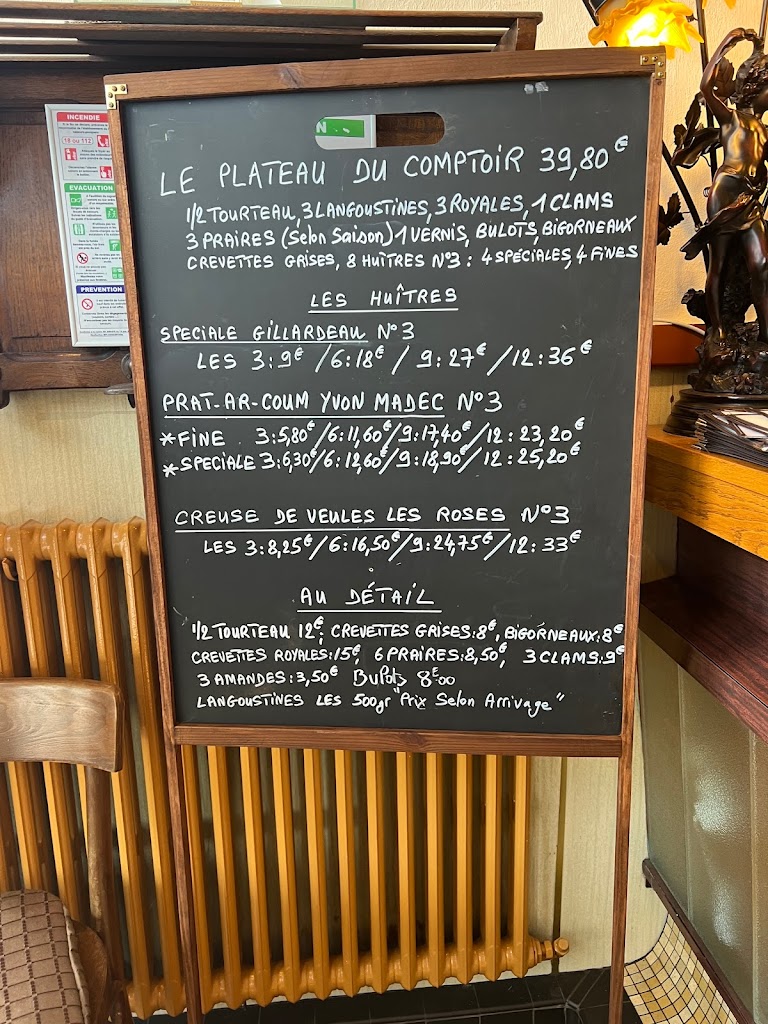 INCENDIE
18 ou 112
EVACUATION
PREVENTION
LE PLATEAU DU COMPTOIR 39,80€
1/2 TOURTEAU, 3 LANGOUSTINES, 3 ROYALES, 1 CLAMS
3 PRAIRES (Selon Saison) 1 VERNIS, BULOTS, BIGORNEAUX
CREVETTES GRISES, 8 HUÎTRES N°3 : 4 SPÉCIALES, 4 FINES
LES HUÎTRES
SPECIALE GILLARDEAU N°3
LES 3:9€ /6:18€ / 9:27€ /12:36€
PRAT-AR-COUM YVON MADEC N°3
*FINE 3:5,80€/6:11,60€/9:17,40€/12:23,20€
*SPECIALE 3:6,30€/6:12,60€/9:18,90€/12:25,20€
CREUSE DE VEULES LES ROSES N°3
LES 3:8,25€/6:16,50€/9:24,75€/12:33€
AU DÉTAIL
1/2 TOURTEAU 12€; CREVETTES GRISES:8€, BIGORNEAUX:8€
CREVETTES ROYALES:15€, 6 PRAIRES:8,50€, 3 CLAMS:9€
3 AMANDES:3,50€ Bulots 8€00
LANGOUSTINES LES 500gr "Prix Selon Arrivage"